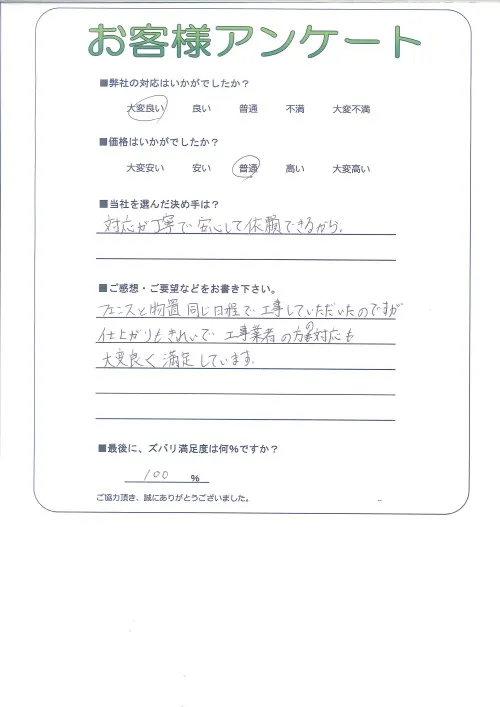 お客様アンケート
■弊社の対応はいかがでしたか？
大変良い 良い 普通 不満 大変不満
■価格はいかがでしたか？
大変安い 安い 普通 高い 大変高い
■当社を選んだ決め手は？
対応が丁寧で安心して依頼できるから.
■ご感想・ご要望などをお書き下さい。
フェンスと物置同じ日程で工事していただいたのですが
仕上がりもきれいで工事業者の方の対応も
大変良く満足しています.
■最後に、ズバリ満足度は何%ですか？
100 %
ご協力頂き、誠にありがとうございました。